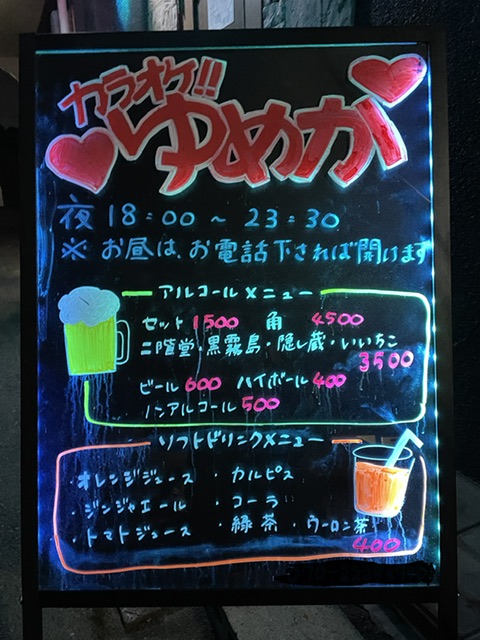 カラオケ!!
ゆめか
夜 18:00 ~ 23:30
※ お昼は、お電話下されば開けます
アルコールメニュー
セット 1500 角 4500
二階堂・黒霧島・隠し蔵・いいちこ
3500
ビール 600 ハイボール 400
ノンアルコール 500
ソフトドリンクメニュー
・オレンジジュース ・カルピス
・ジンジャエール ・コーラ
・トマトジュース ・緑茶 ・ウーロン茶
400